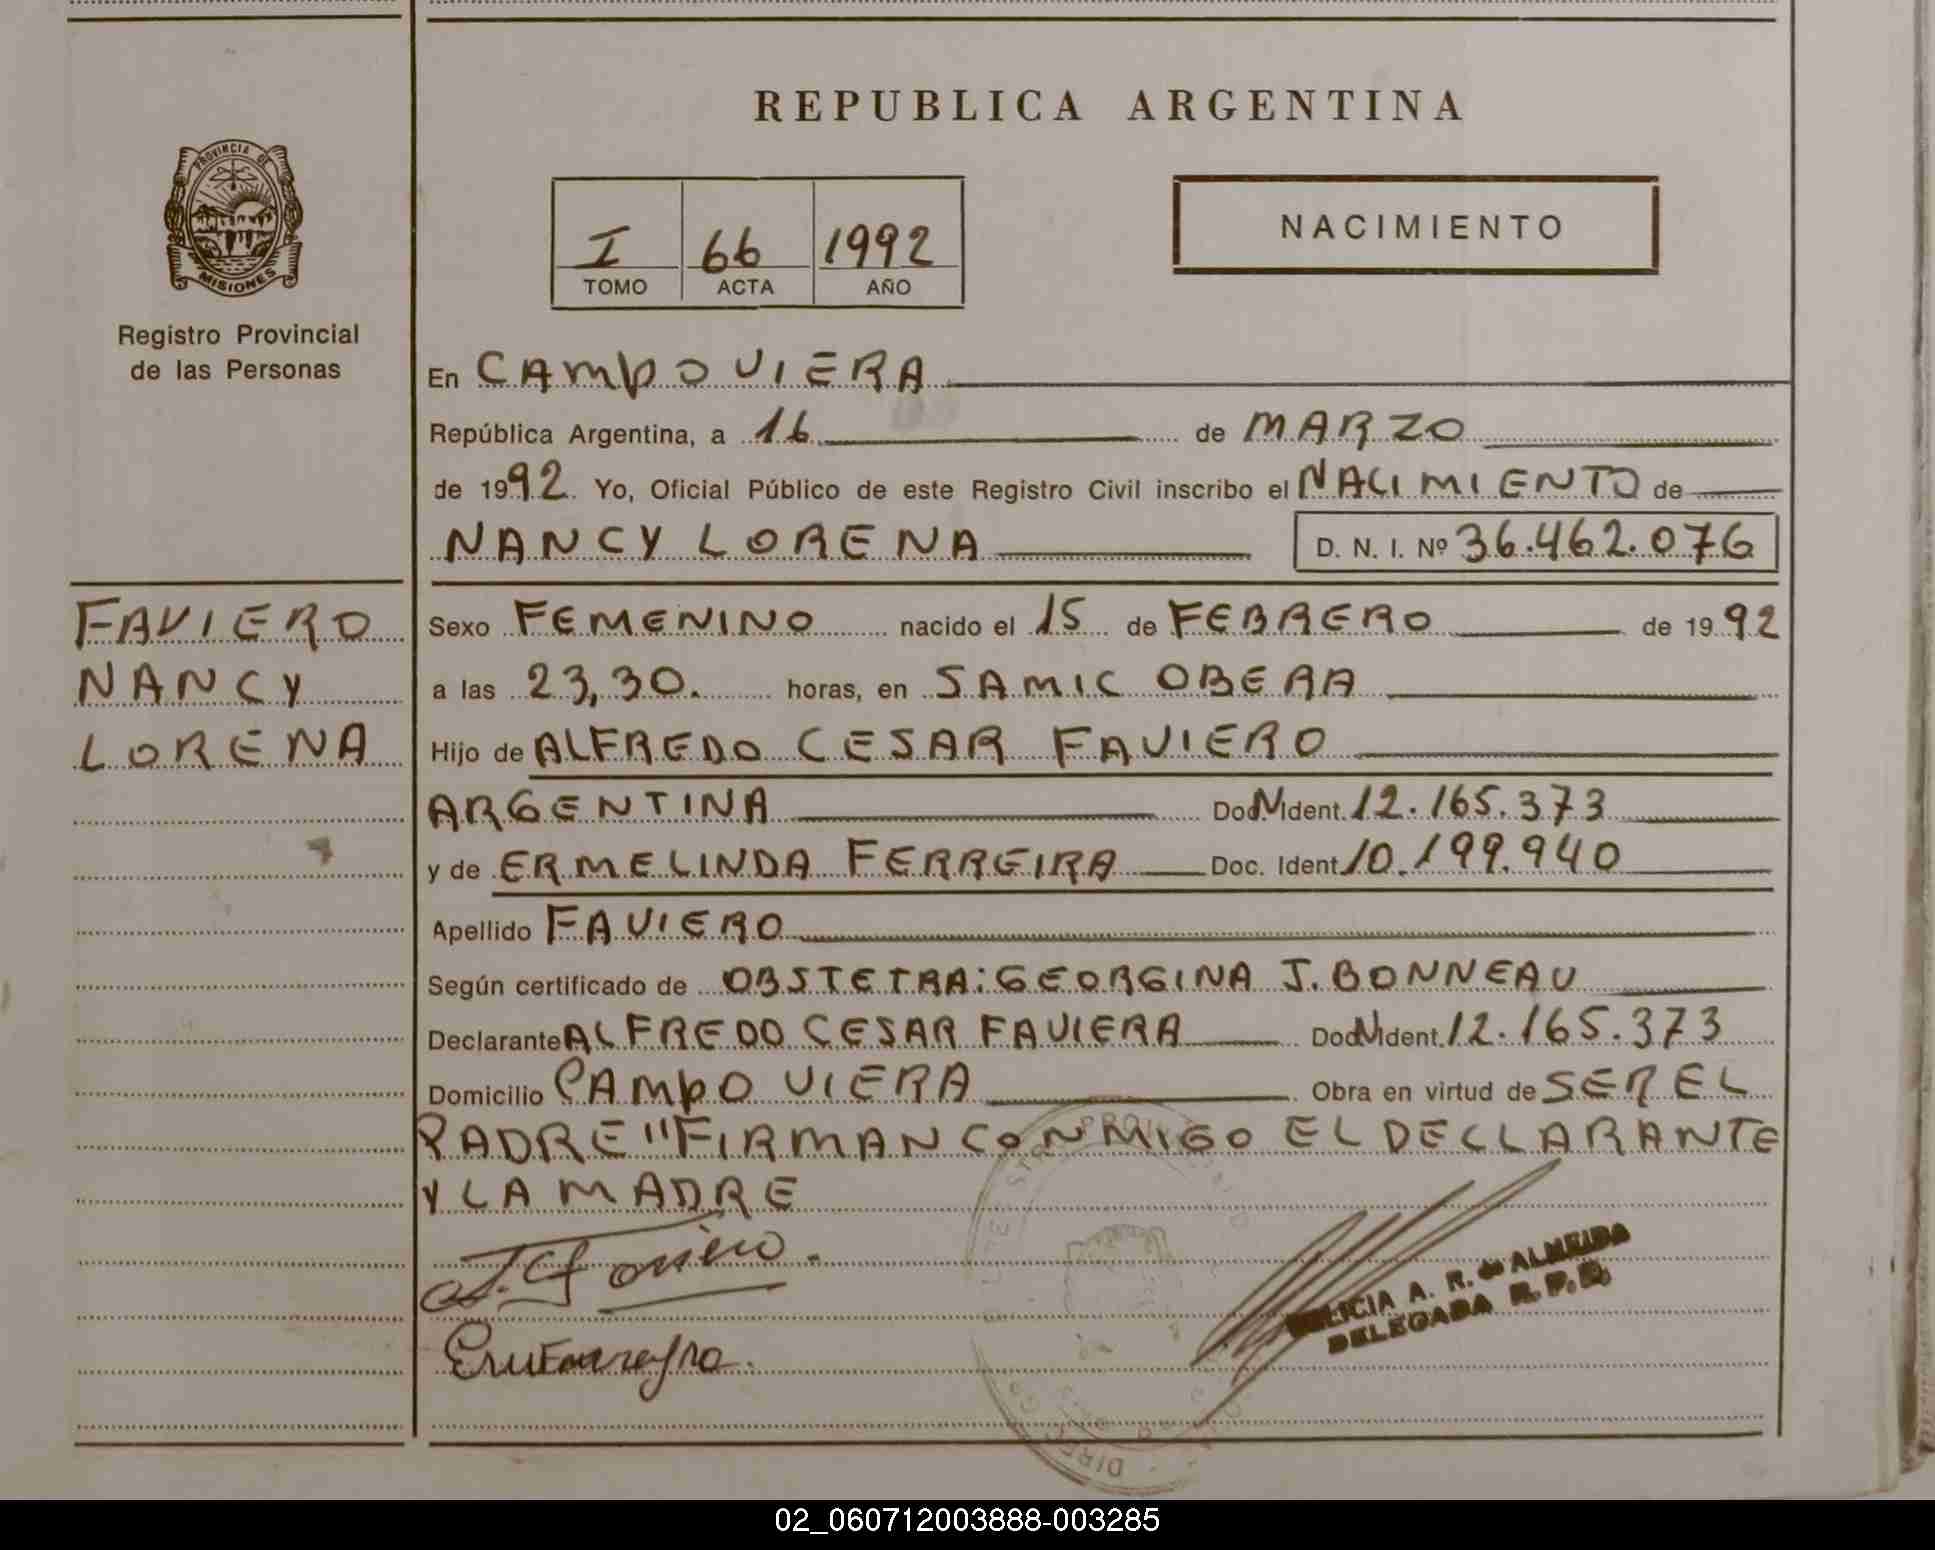 REPUBLICA ARGENTINA
PROVINCIA DE
MISIONES
Registro Provincial
de las Personas
I 66 1992
TOMO ACTA AÑO
NACIMIENTO
En CAMPO VIERA
República Argentina, a 16 de MARZO
de 1992. Yo, Oficial Público de este Registro Civil inscribo el NACIMIENTO de
NANCY LORENA D. N. I. Nº 36.462.076
FAVIERO
NANCY
LORENA
Sexo FEMENINO nacido el 15 de FEBRERO de 1992
a las 23,30. horas, en SAMIC OBERA
Hijo de ALFREDO CESAR FAVIERO
ARGENTINA Doc. Ident. 12.165.373
y de ERMELINDA FERREIRA Doc. Ident. 10.199.940
Apellido FAVIERO
Según certificado de OBSTETRA: GEORGINA J. BONNEAU
Declarante ALFREDO CESAR FAVIERA Doc. Ident. 12.165.373
Domicilio CAMPO VIERA Obra en virtud de SER EL
PADRE "FIRMAN CONMIGO EL DECLARANTE
Y LA MADRE
A. R. de ALMEIDA
DELEGADA R. P. P.
02_060712003888-003285